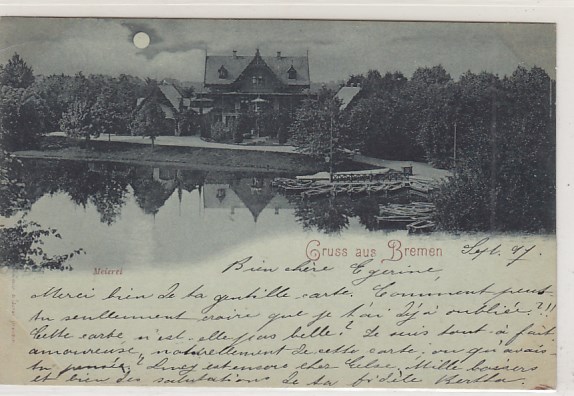 Meierei
Gruss aus Bremen
Sept. 97.
Bien chère Egerine,
Merci bien de ta gentille carte. Comment peux-
tu seullement croire que je t'ai déjà oubliée?!!
Cette carte n'est-elle pas belle? Je suis tout à fait
amoureuse, naturellement de cette carte, ou qu'avais-
tu pensée? est encore chez Else. Mille baisers
et bien des salutations de ta fidèle Bertha.